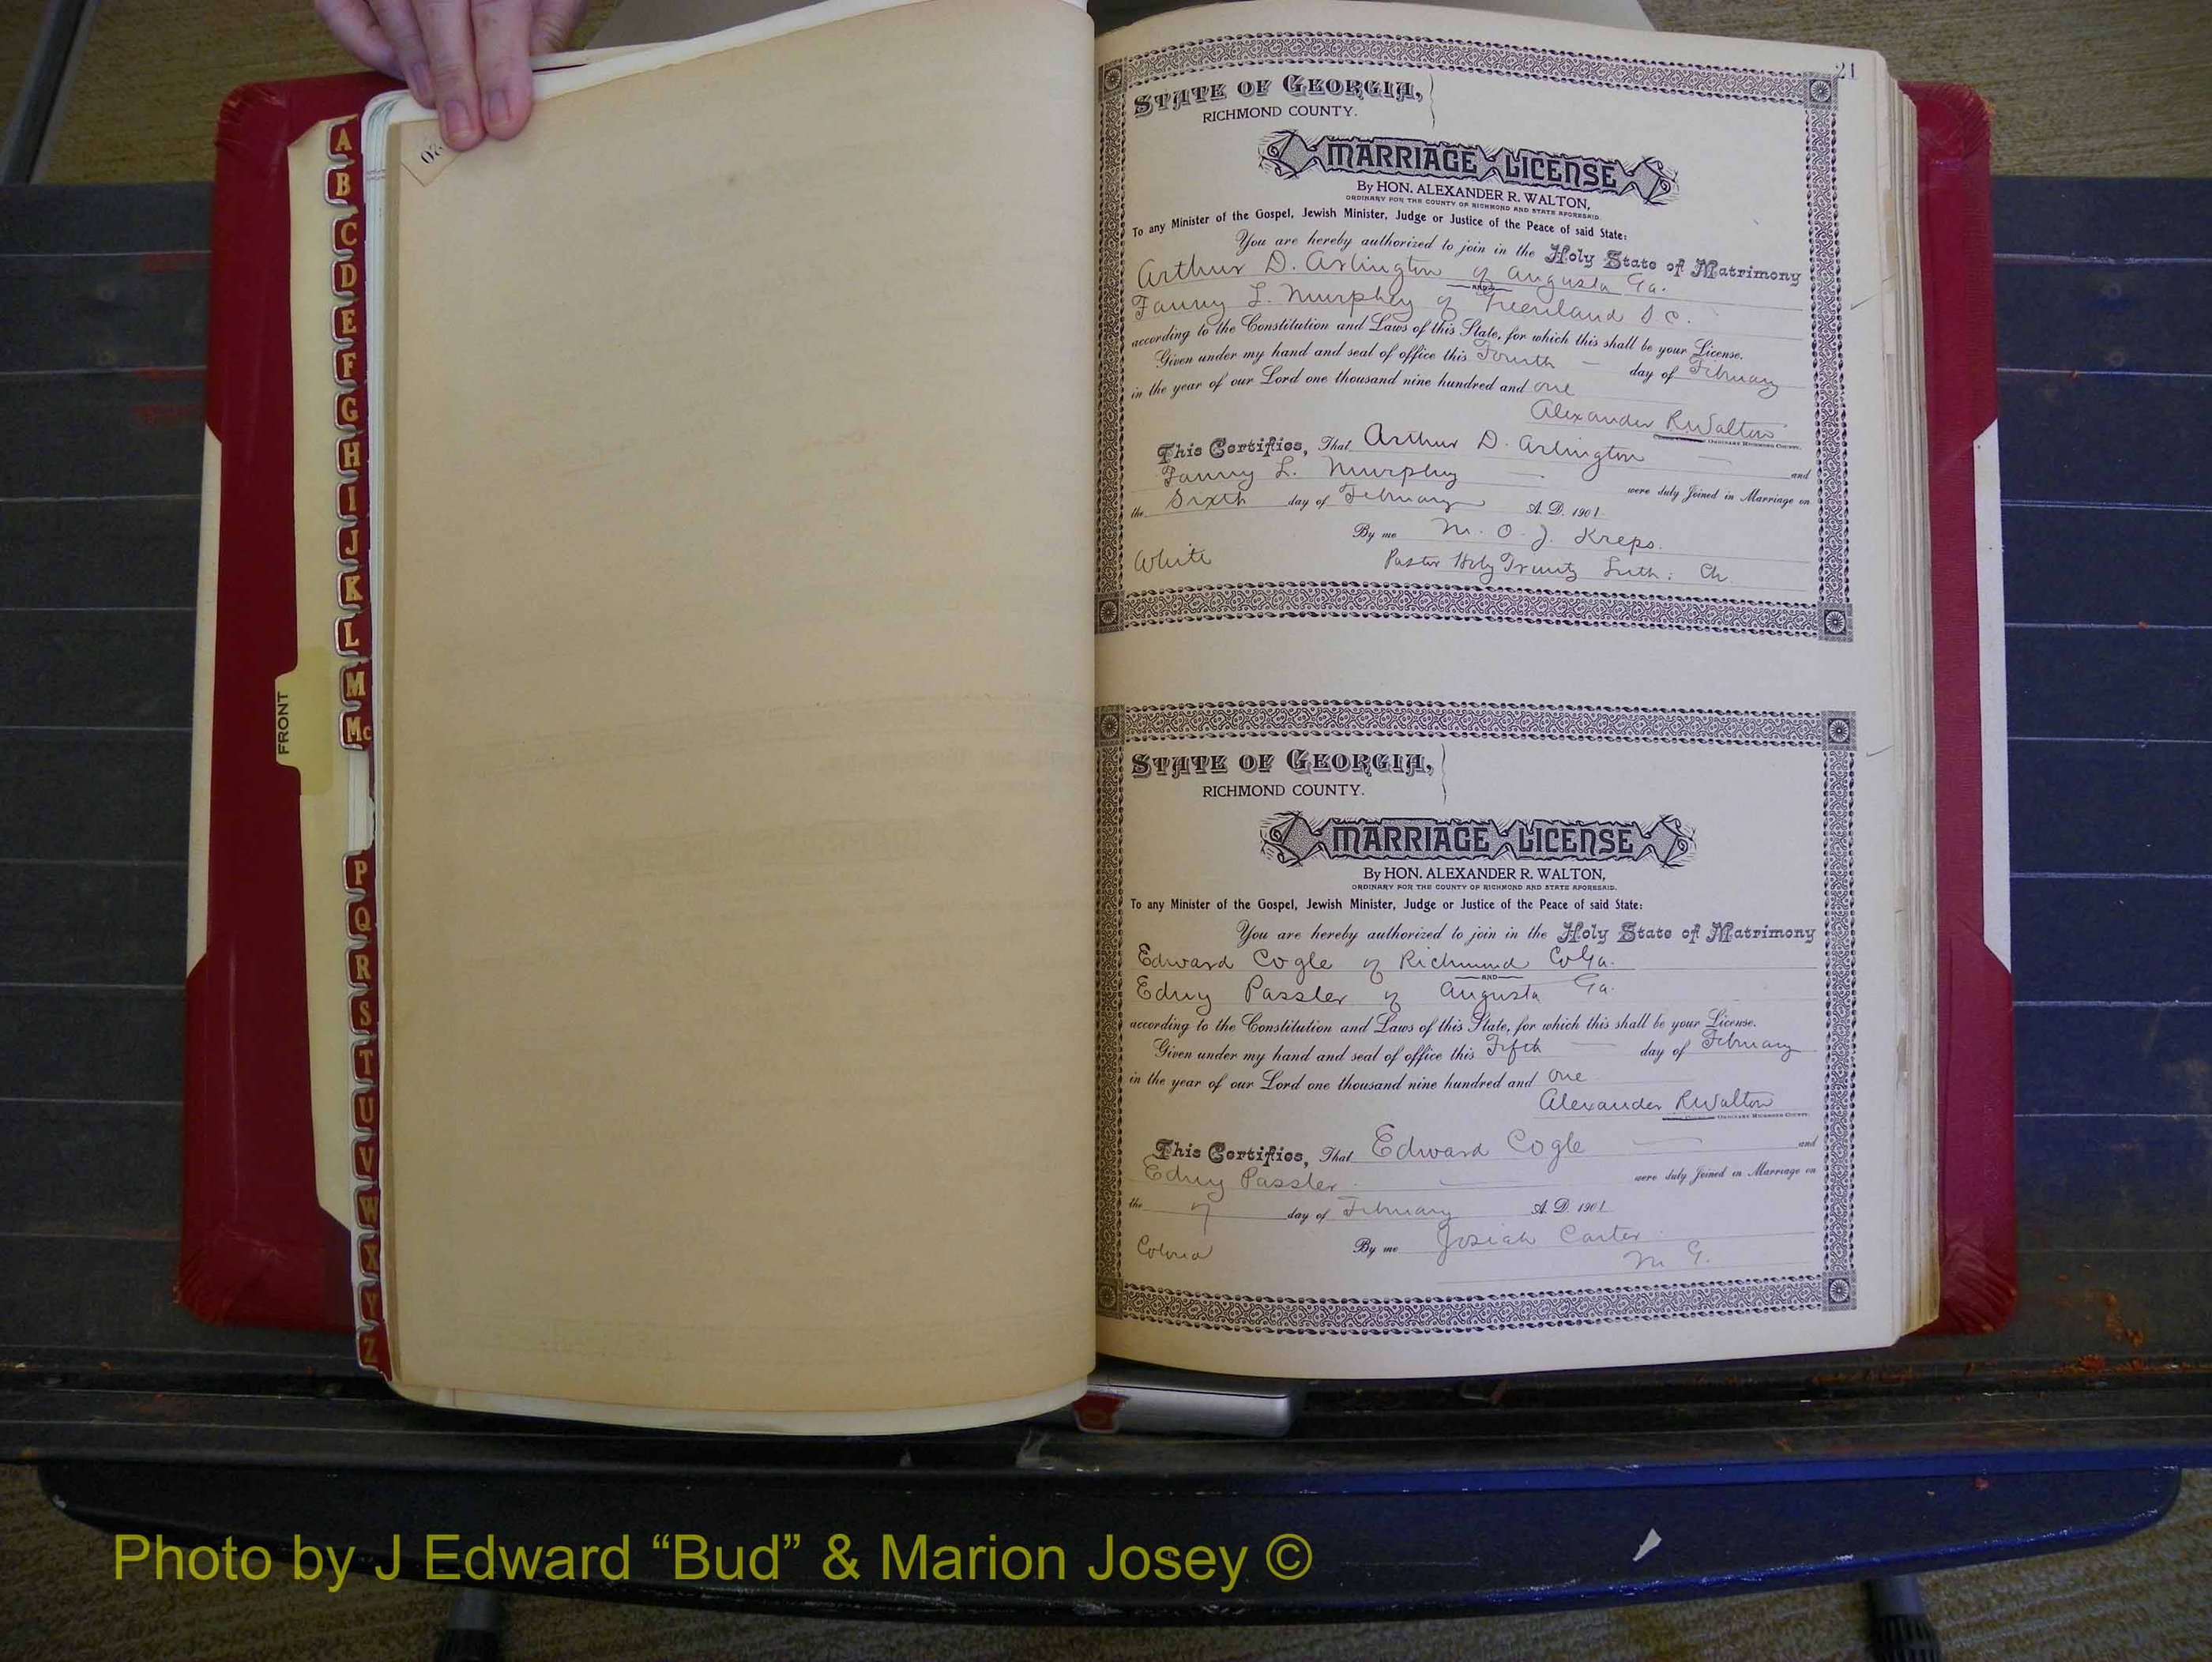 A
B
C
D
E
F
G
H
I
J
K
L
M
Mc
P
Q
R
S
T
U
V
W
X
Y
Z
FRONT
20
21
STATE OF GEORGIA,
RICHMOND COUNTY.
MARRIAGE LICENSE
By HON. ALEXANDER R. WALTON,
ORDINARY FOR THE COUNTY OF RICHMOND AND STATE AFORESAID.
To any Minister of the Gospel, Jewish Minister, Judge or Justice of the Peace of said State:
You are hereby authorized to join in the Holy State of Matrimony
Arthur D. Arlington of Augusta Ga.
AND
Fanny L. Murphey of Greenland S C.
according to the Constitution and Laws of this State, for which this shall be your License.
Given under my hand and seal of office this Fourth day of February
in the year of our Lord one thousand nine hundred and one
Alexander R. Walton
ORDINARY RICHMOND COUNTY.
This Certifies, That Arthur D. Arlington and
Fanny L. Murphy were duly Joined in Marriage on
the Sixth day of February A. D. 1901
By me M. O. J. Kreps.
White Pastor Holy Trinity Luth: Ch.
STATE OF GEORGIA,
RICHMOND COUNTY.
MARRIAGE LICENSE
By HON. ALEXANDER R. WALTON,
ORDINARY FOR THE COUNTY OF RICHMOND AND STATE AFORESAID.
To any Minister of the Gospel, Jewish Minister, Judge or Justice of the Peace of said State:
You are hereby authorized to join in the Holy State of Matrimony
Edward Cogle of Richmond Co Ga.
AND
Edny Passler of Augusta Ga.
according to the Constitution and Laws of this State, for which this shall be your License.
Given under my hand and seal of office this Fifth day of February
in the year of our Lord one thousand nine hundred and one
Alexander R Walton
ORDINARY RICHMOND COUNTY.
This Certifies, That Edward Cogle and
Edny Passler were duly Joined in Marriage on
the 7 day of February A. D. 1901
Colored By me Josiah Carter
M G.
Photo by J Edward “Bud” & Marion Josey ©